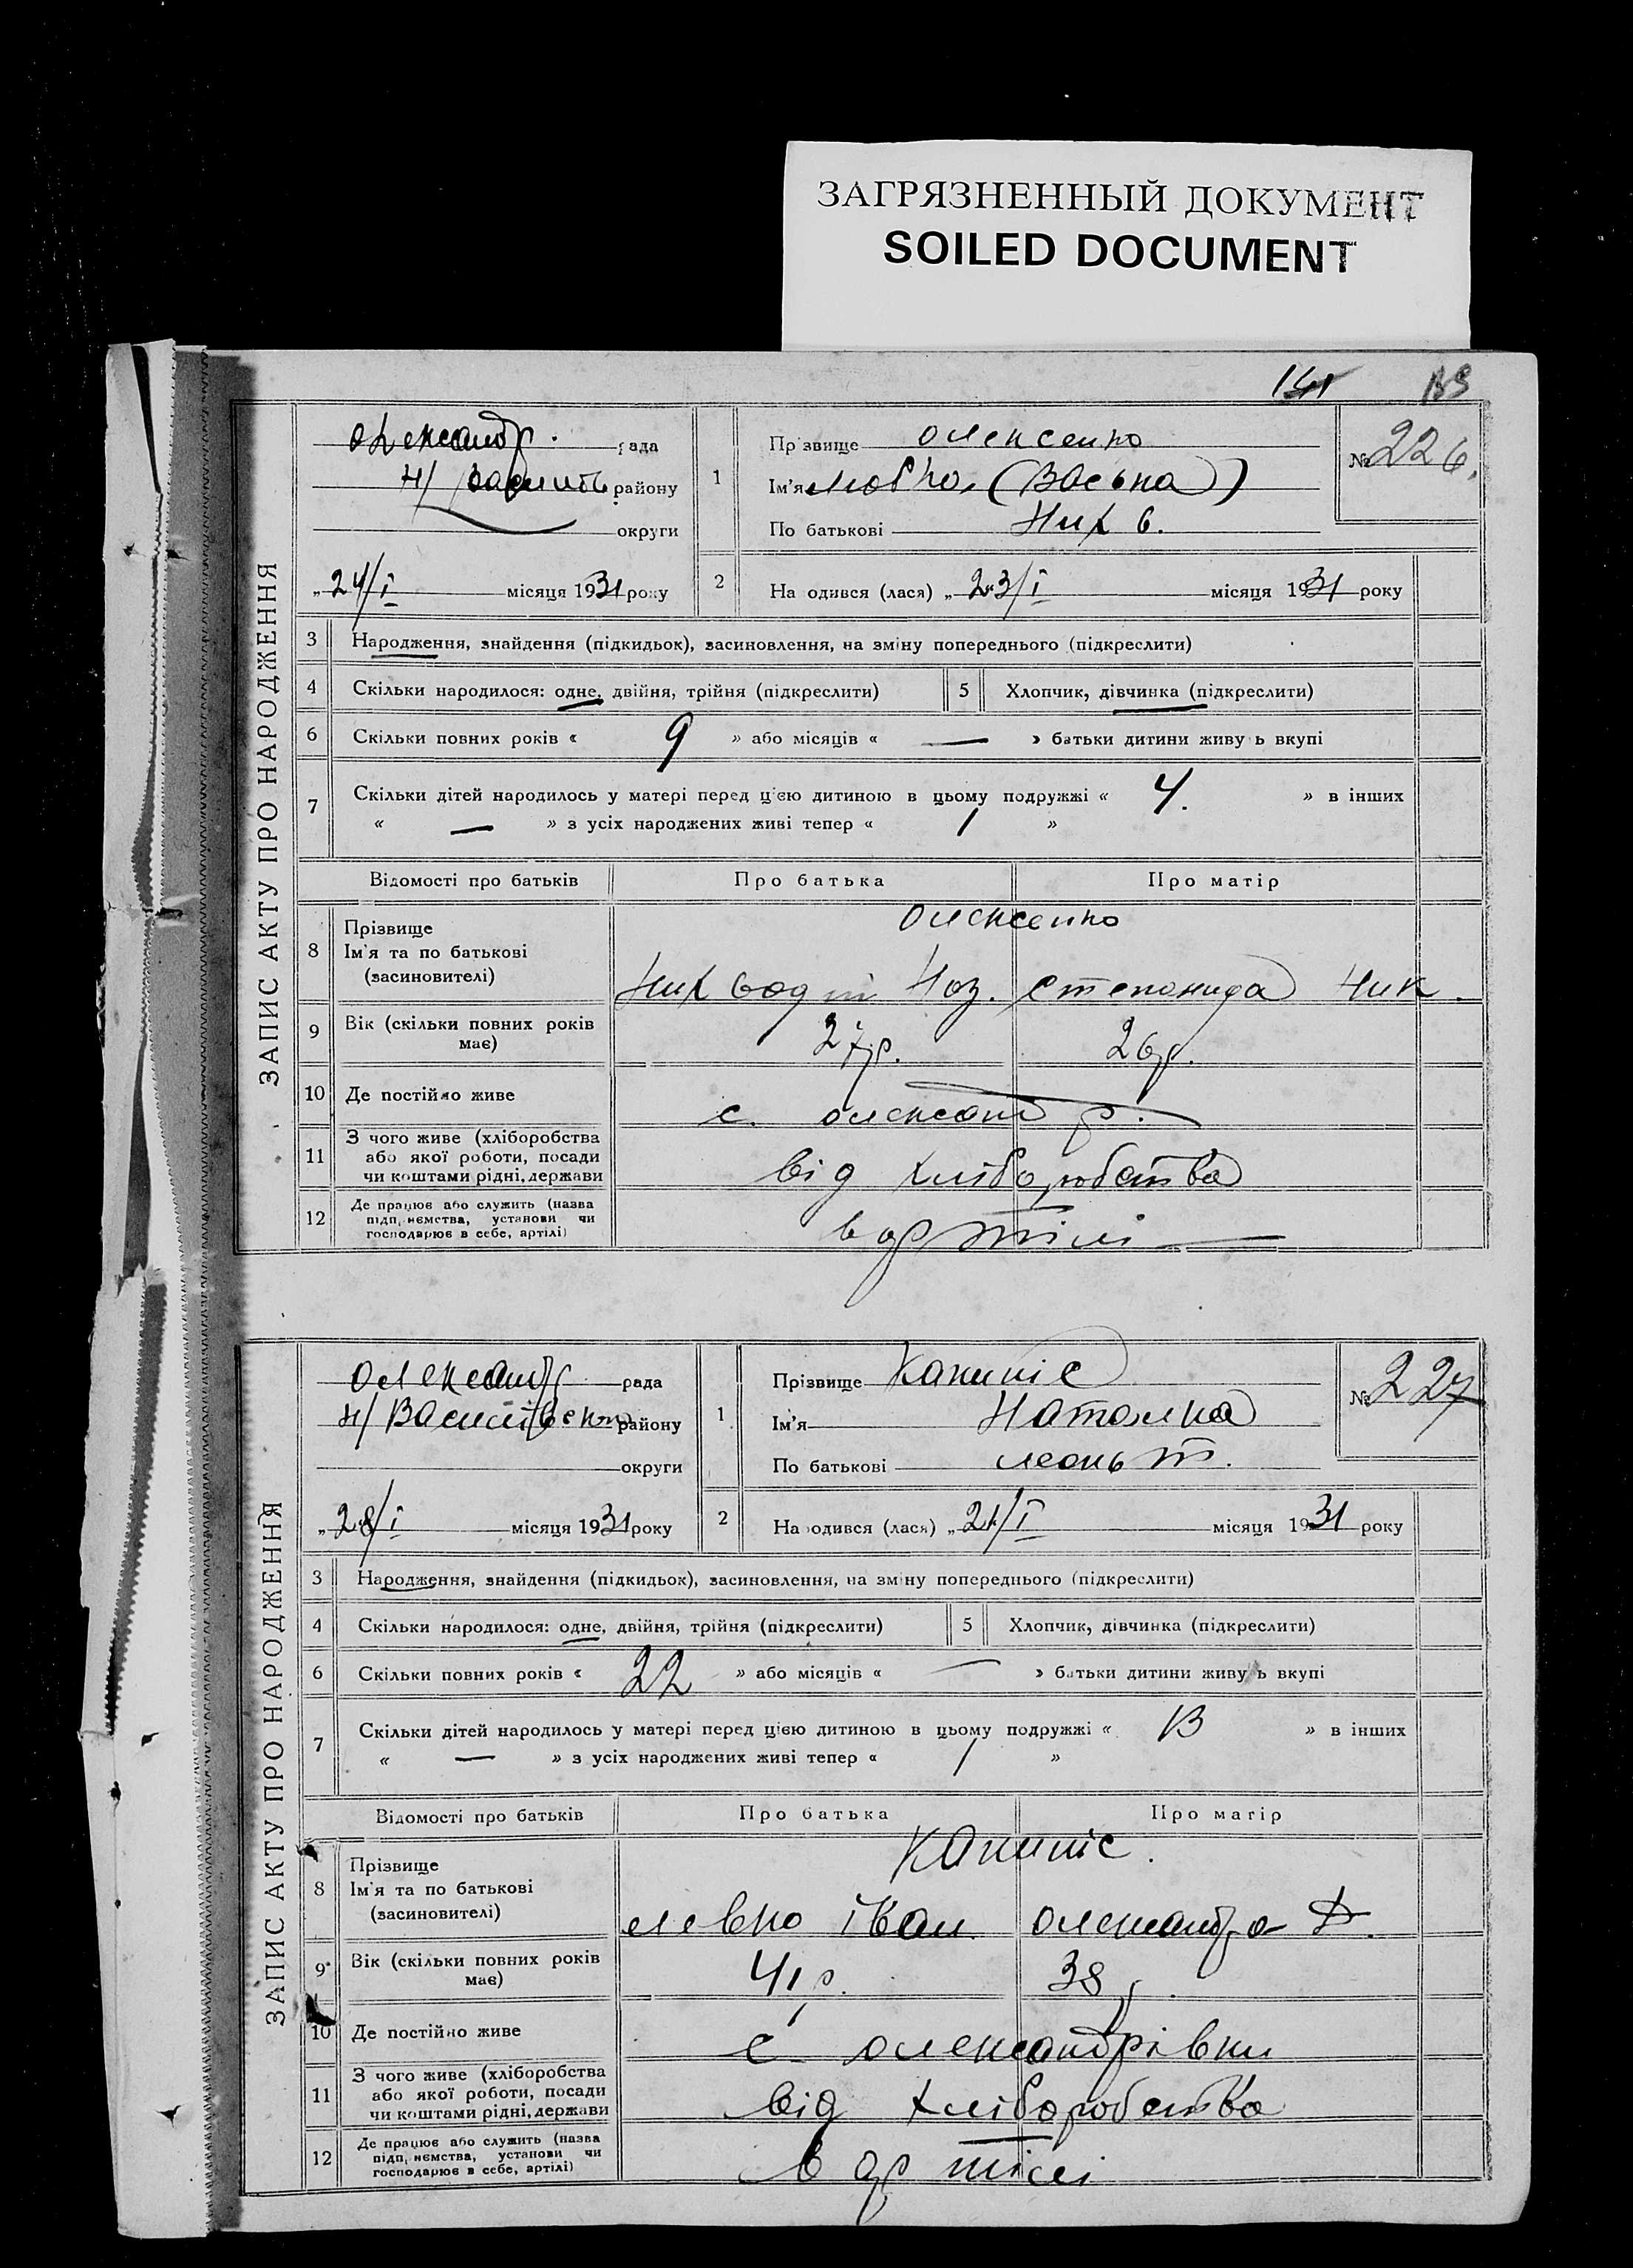 ЗАГРЯЗНЕННЫЙ ДОКУМЕНТ
SOILED DOCUMENT
ЗАПИС АКТУ ПРО НАРОДЖЕННЯ
Олександр. рада
Н/Василів району
округи
„24/I місяця 1931 року
1
Прізвище Олексенко
Ім'я Любка (Васька)
По батькові Ник в.
№ 226.
2 Народився (лася) „23/I місяця 1931 року
3 Народження, знайдення (підкидьок), засиновлення, на зміну попереднього (підкреслити)
4 Скільки народилося: одне, двійня, трійня (підкреслити) 5 Хлопчик, дівчинка (підкреслити)
6 Скільки повних років « 9 » або місяців « — » батьки дитини живуть вкупі
7 Скільки дітей народилось у матері перед цією дитиною в цьому подружжі « 4. » в інших
« — » з усіх народжених живі тепер « 1 »
Відомості про батьків Про батька Про матір
8 Прізвище
Ім'я та по батькові
(засиновителі)
Олексенко
Степонида Ник.
9 Вік (скільки повних років
має)
27р. 26р.
10 Де постійно живе с. Олександр.
11 З чого живе (хліборобства
або якої роботи, посади
чи коштами рідні, держави
від хліборобства
12 Де працює або служить (назва
підприємства, установи чи
господарює в себе, артілі)
в артілі
ЗАПИС АКТУ ПРО НАРОДЖЕННЯ
Олександр рада
Н/Василівськ району
округи
„28/I місяця 1931 року
1
Прізвище Капиніс
Ім'я Наталка
По батькові Леонь т.
№ 227
2 Народився (лася) „21/I місяця 1931 року
3 Народження, знайдення (підкидьок), засиновлення, на зміну попереднього (підкреслити)
4 Скільки народилося: одне, двійня, трійня (підкреслити) 5 Хлопчик, дівчинка (підкреслити)
6 Скільки повних років « 22 » або місяців « — » батьки дитини живуть вкупі
7 Скільки дітей народилось у матері перед цією дитиною в цьому подружжі « 13 » в інших
« — » з усіх народжених живі тепер « 1 »
Відомості про батьків Про батька Про матір
8 Прізвище
Ім'я та по батькові
(засиновителі)
Капиніс.
Левко Іван. Олександра Д.
9 Вік (скільки повних років
має)
41р. 38р.
10 Де постійно живе с. Олександрівки
11 З чого живе (хліборобства
або якої роботи, посади
чи коштами рідні, держави
від хліборобства
12 Де працює або служить (назва
підприємства, установи чи
господарює в себе, артілі)
в артілі